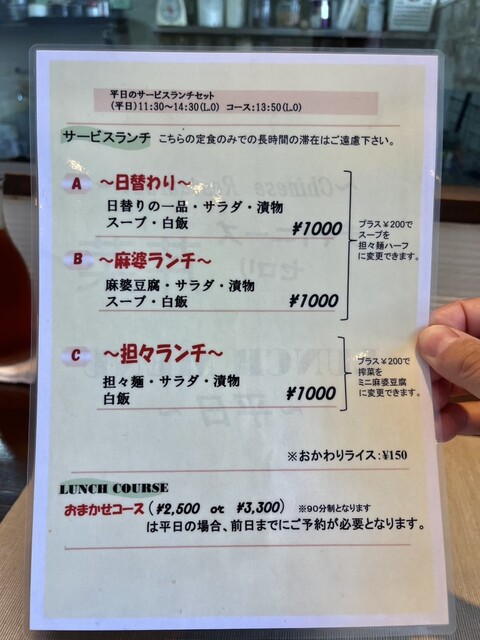 平日のサービスランチセット
(平日)11:30～14:30(L.O) コース:13:50(L.O)
サービスランチ こちらの定食のみでの長時間の滞在はご遠慮下さい。
A ～日替わり～
日替りの一品・サラダ・漬物
スープ・白飯
¥1000
B ～麻婆ランチ～
麻婆豆腐・サラダ・漬物
スープ・白飯
¥1000
プラス¥200で
スープを
担々麺ハーフ
に変更できます。
C ～担々ランチ～
担々麺・サラダ・漬物
白飯
¥1000
プラス¥200で
搾菜を
ミニ麻婆豆腐
に変更できます。
※おかわりライス:¥150
LUNCH COURSE
おまかせコース(¥2,500 or ¥3,300) ※90分制となります
は平日の場合、前日までにご予約が必要となります。